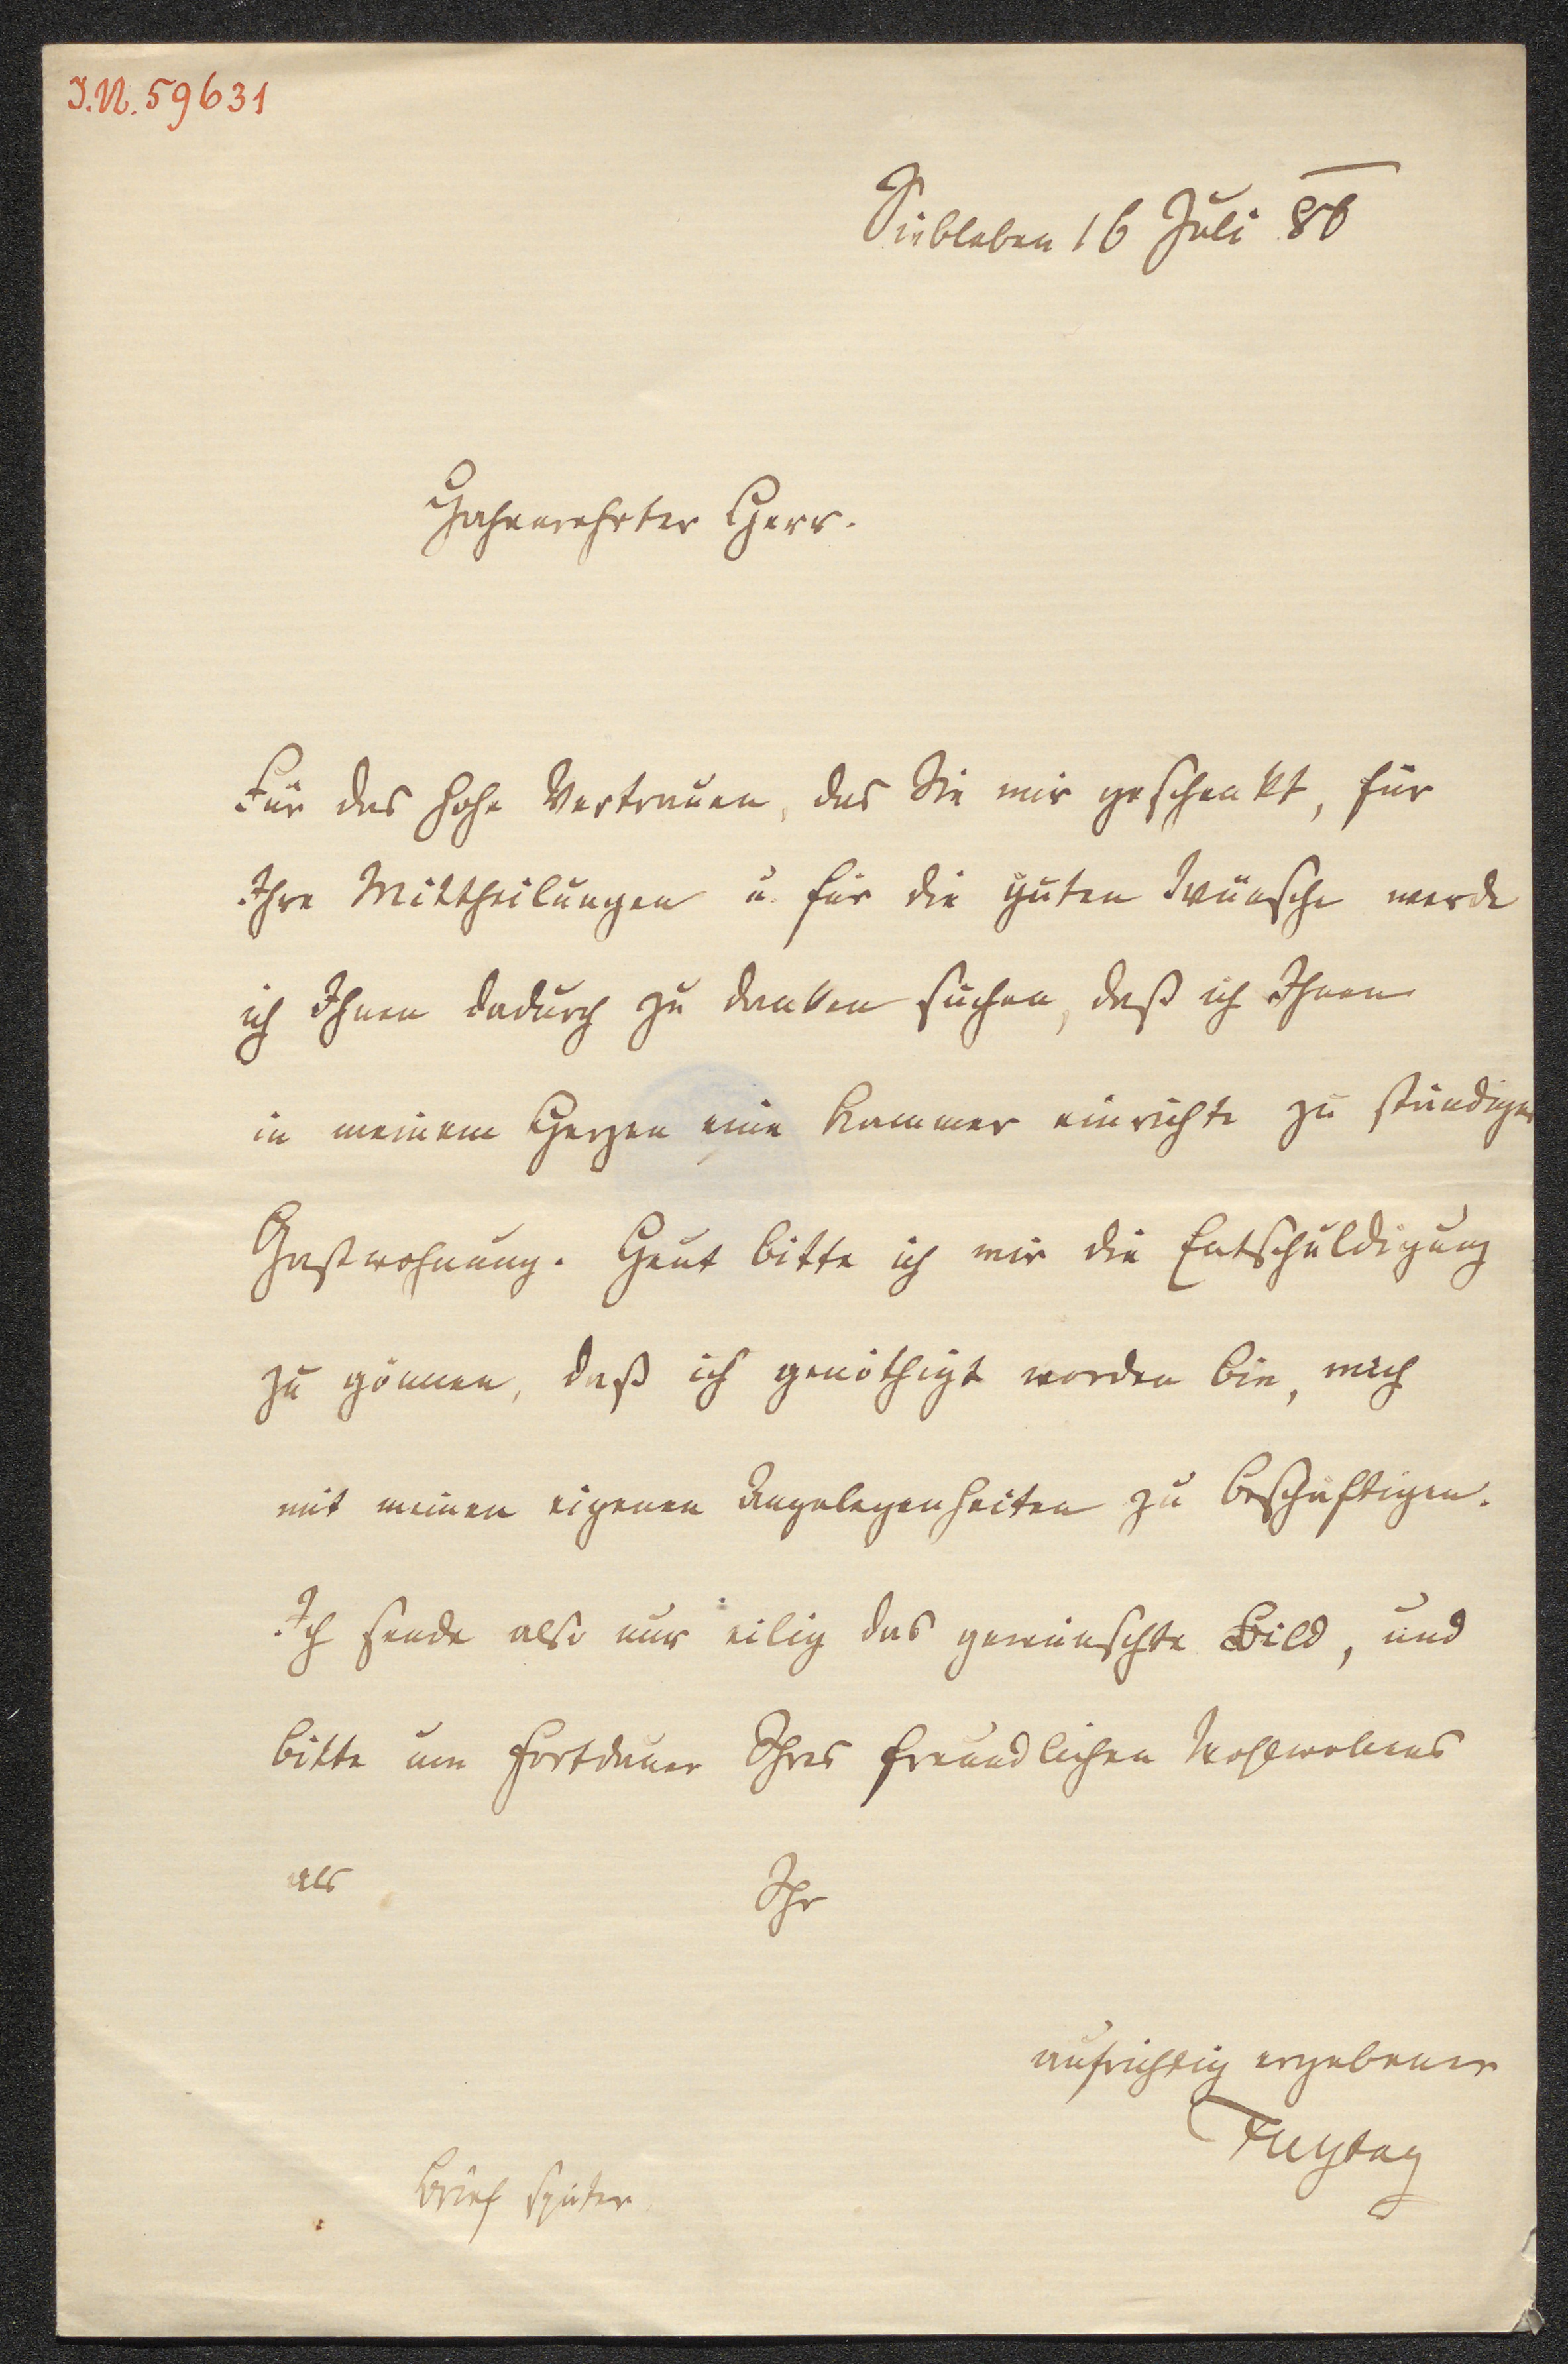 I.N. 59631
Siebleben 16 Juli 86
Hochverehrter Herr.
Für das hohe Vertrauen, das Sie mir geschenkt, für
Ihre Mittheilungen u. für die guten Wünsche werde
ich Ihnen dadurch zu danken suchen, daß ich Ihnen
in meinem Herzen eine Kammer einrichte zu ständiger
Gastwohnung. Heut bitte ich mir die Entschuldigung
zu gönnen, daß ich genöthigt worden bin, mich
mit meinen eigenen Angelegenheiten zu beschäftigen.
Ich sende also nur eilig das gewünschte Bild, und
bitte um Fortdauer Ihres freundlichen Wohlwollens
als Ihr
aufrichtig ergebener
Freytag
Brief später